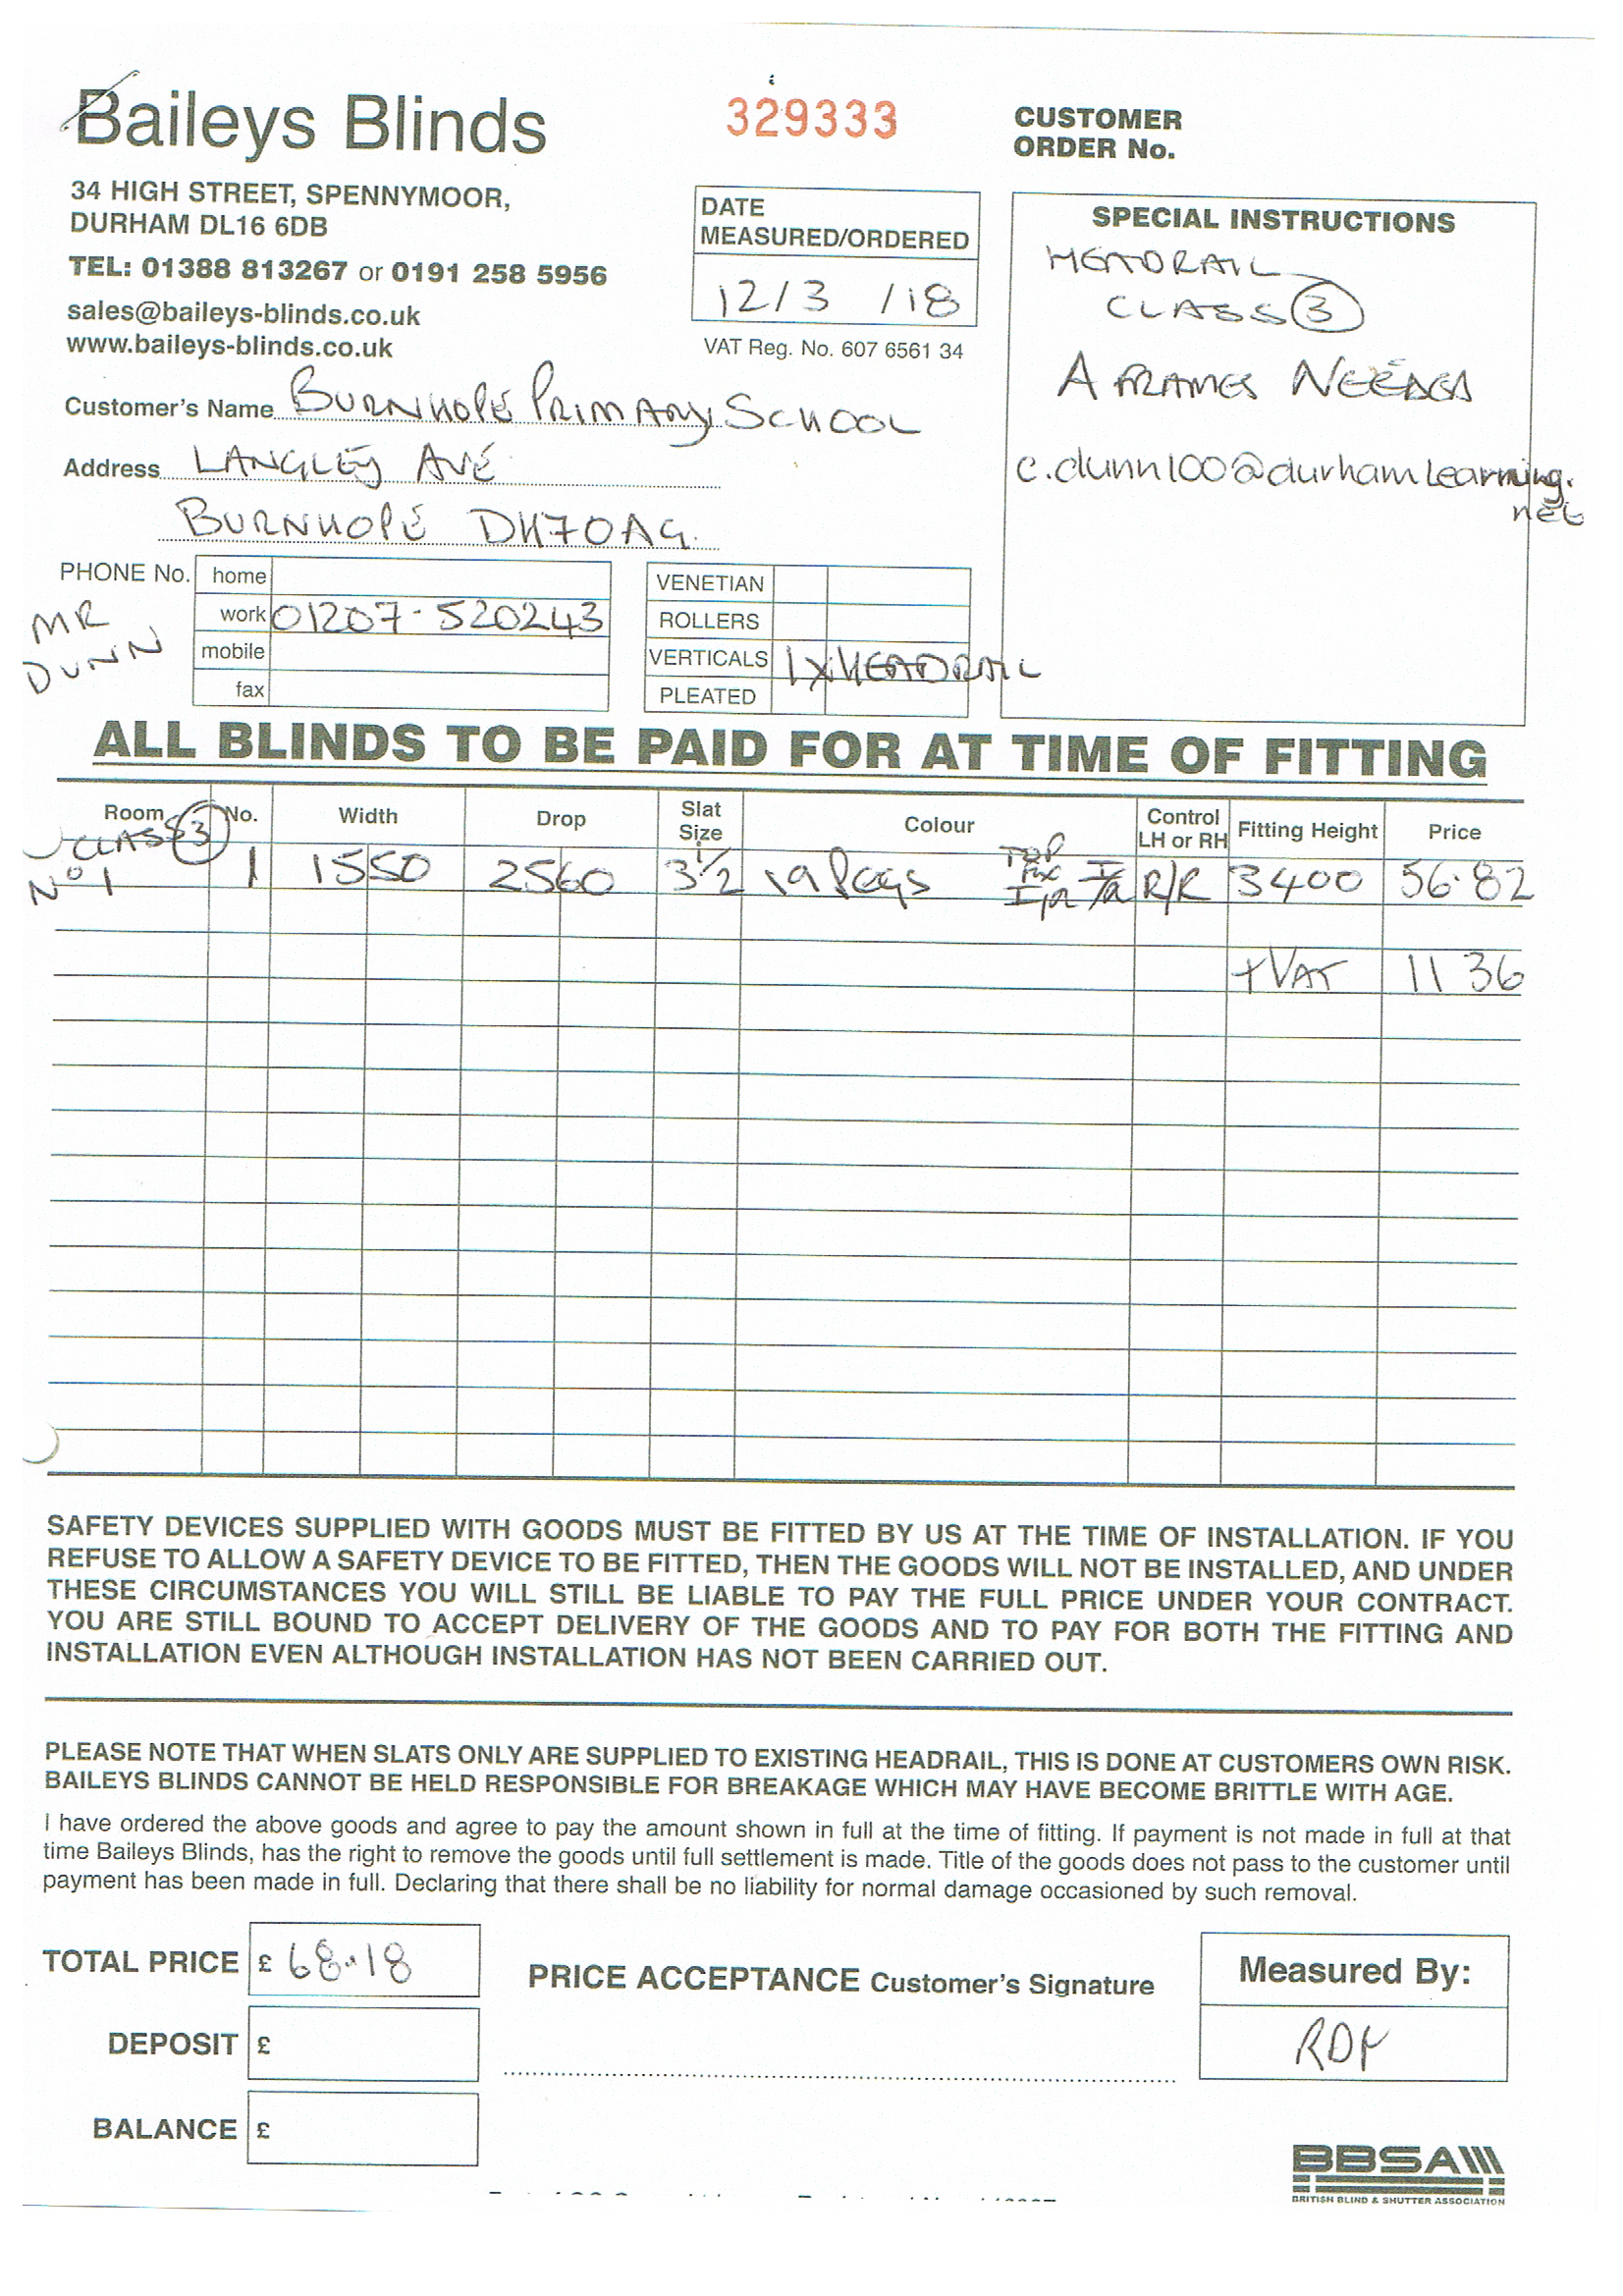 Baileys Blinds
34 HIGH STREET, SPENNYMOOR,
DURHAM DL16 6DB
TEL: 01388 813267 or 0191 258 5956
sales@baileys-blinds.co.uk
www.baileys-blinds.co.uk
329333
DATE
MEASURED/ORDERED
12/3 /18
VAT Reg. No. 607 6561 34
CUSTOMER
ORDER No.
SPECIAL INSTRUCTIONS
HEADRAIL
CLASS 3
A FRAMES NEEDED
c.dunn100@durhamlearning.
net
Customer's Name BURNHOPE PRIMARY SCHOOL
Address LANGLEY AVE
BURNHOPE DH7 0AG.
PHONE No. home
work 01207-520243
mobile
fax
MR
DUNN
VENETIAN
ROLLERS
VERTICALS 1 X HEADRAIL
PLEATED
ALL BLINDS TO BE PAID FOR AT TIME OF FITTING
Room No. Width Drop Slat Size Colour Control LH or RH Fitting Height Price
CLASS 3
No 1 1 1550 2560 3 1/2 19 Pegs TOP FIX R/R 3400 56.82
+ VAT 11 36
SAFETY DEVICES SUPPLIED WITH GOODS MUST BE FITTED BY US AT THE TIME OF INSTALLATION. IF YOU
REFUSE TO ALLOW A SAFETY DEVICE TO BE FITTED, THEN THE GOODS WILL NOT BE INSTALLED, AND UNDER
THESE CIRCUMSTANCES YOU WILL STILL BE LIABLE TO PAY THE FULL PRICE UNDER YOUR CONTRACT.
YOU ARE STILL BOUND TO ACCEPT DELIVERY OF THE GOODS AND TO PAY FOR BOTH THE FITTING AND
INSTALLATION EVEN ALTHOUGH INSTALLATION HAS NOT BEEN CARRIED OUT.
PLEASE NOTE THAT WHEN SLATS ONLY ARE SUPPLIED TO EXISTING HEADRAIL, THIS IS DONE AT CUSTOMERS OWN RISK.
BAILEYS BLINDS CANNOT BE HELD RESPONSIBLE FOR BREAKAGE WHICH MAY HAVE BECOME BRITTLE WITH AGE.
I have ordered the above goods and agree to pay the amount shown in full at the time of fitting. If payment is not made in full at that
time Baileys Blinds, has the right to remove the goods until full settlement is made. Title of the goods does not pass to the customer until
payment has been made in full. Declaring that there shall be no liability for normal damage occasioned by such removal.
TOTAL PRICE £ 68.18
DEPOSIT £
BALANCE £
PRICE ACCEPTANCE Customer's Signature
Measured By:
BBSA
BRITISH BLIND & SHUTTER ASSOCIATION